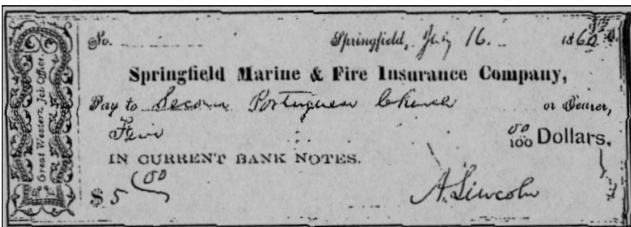 Great Western Job Office.
No. Springfield, July 16. 1860
Springfield Marine & Fire Insurance Company,
Pay to Second Portuguese Church or Bearer,
Five 00/100 Dollars.
IN CURRENT BANK NOTES.
$5 00
A. Lincoln